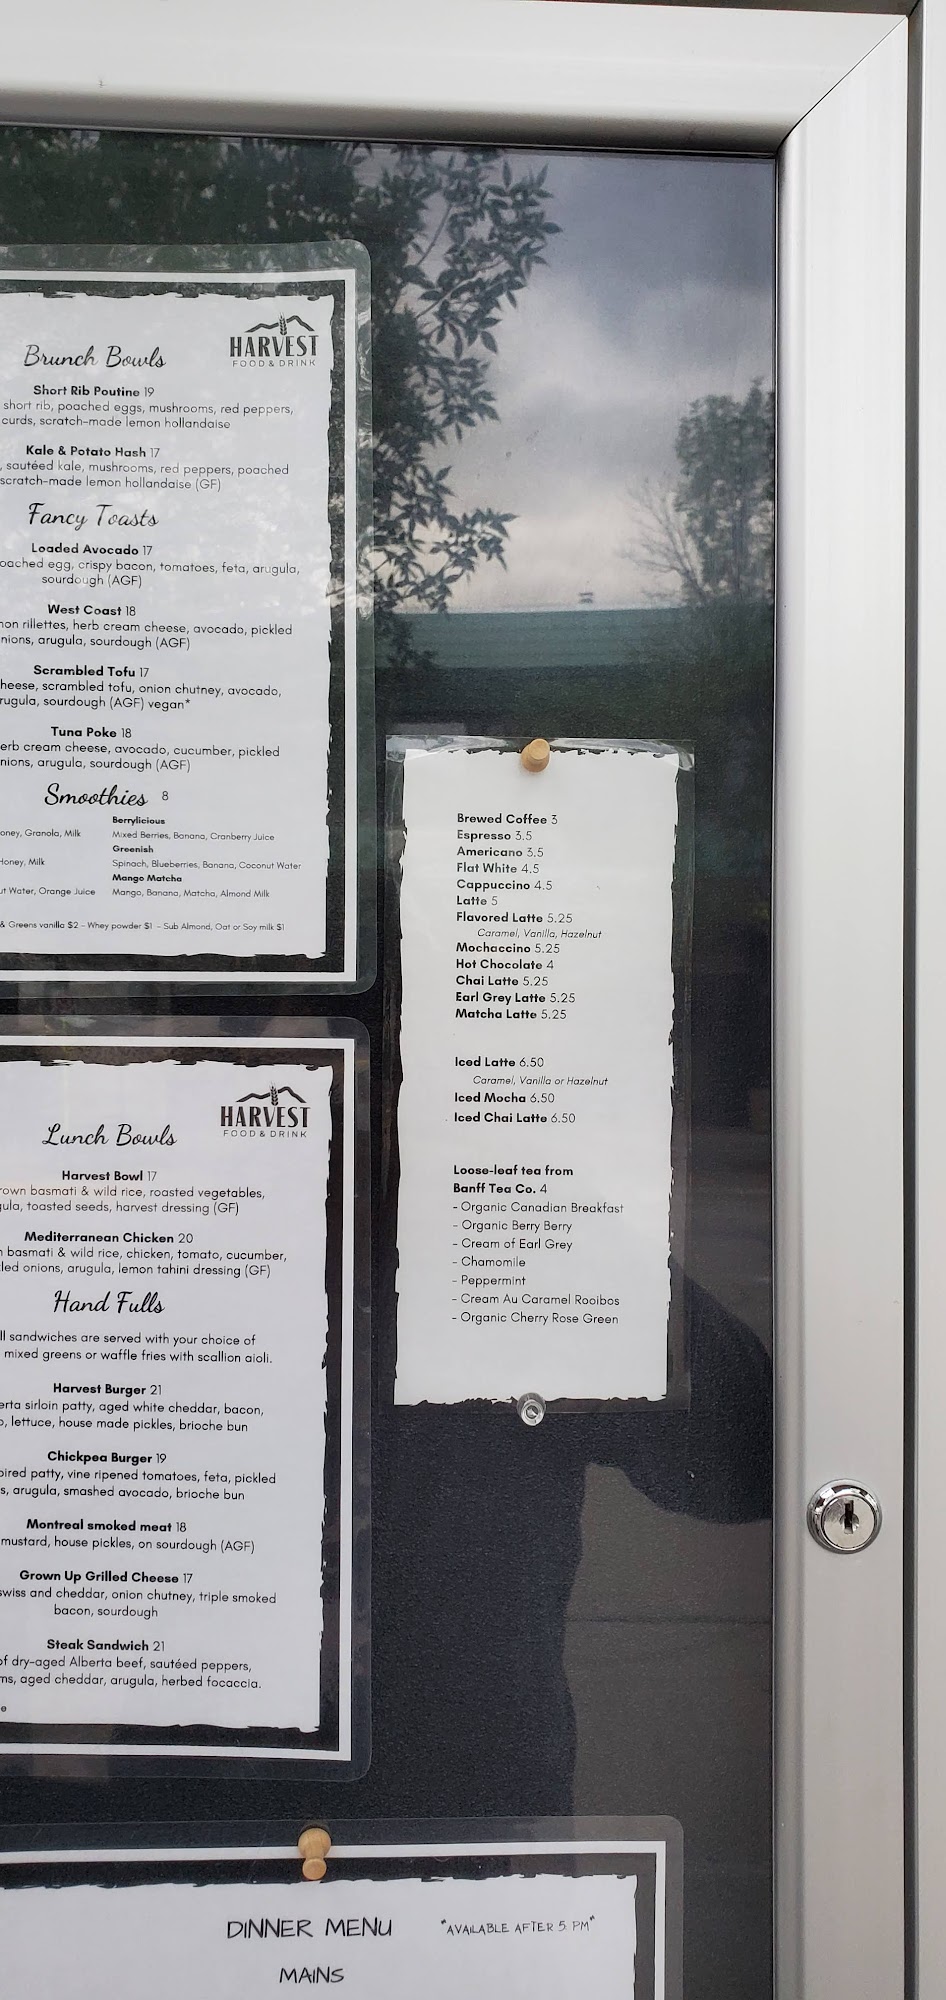 Brunch Bowls
HARVEST
FOOD & DRINK
Short Rib Poutine 19
short rib, poached eggs, mushrooms, red peppers,
curds, scratch-made lemon hollandaise
Kale & Potato Hash 17
, sautéed kale, mushrooms, red peppers, poached
scratch-made lemon hollandaise (GF)
Fancy Toasts
Loaded Avocado 17
oached egg, crispy bacon, tomatoes, feta, arugula,
sourdough (AGF)
West Coast 18
mon rillettes, herb cream cheese, avocado, pickled
nions, arugula, sourdough (AGF)
Scrambled Tofu 17
heese, scrambled tofu, onion chutney, avocado,
rugula, sourdough (AGF) vegan*
Tuna Poke 18
erb cream cheese, avocado, cucumber, pickled
nions, arugula, sourdough (AGF)
Smoothies 8
Berrylicious
oney, Granola, Milk
Mixed Berries, Banana, Cranberry Juice
Greenish
Honey, Milk
Spinach, Blueberries, Banana, Coconut Water
Mango Matcha
ut Water, Orange Juice
Mango, Banana, Matcha, Almond Milk
& Greens vanilla $2 - Whey powder $1 - Sub Almond, Oat or Soy milk $1
Brewed Coffee 3
Espresso 3.5
Americano 3.5
Flat White 4.5
Cappuccino 4.5
Latte 5
Flavored Latte 5.25
Caramel, Vanilla, Hazelnut
Mochaccino 5.25
Hot Chocolate 4
Chai Latte 5.25
Earl Grey Latte 5.25
Matcha Latte 5.25
Iced Latte 6.50
Caramel, Vanilla or Hazelnut
Iced Mocha 6.50
Iced Chai Latte 6.50
Loose-leaf tea from
Banff Tea Co. 4
- Organic Canadian Breakfast
- Organic Berry Berry
- Cream of Earl Grey
- Chamomile
- Peppermint
- Cream Au Caramel Rooibos
- Organic Cherry Rose Green
HARVEST
FOOD & DRINK
Lunch Bowls
Harvest Bowl 17
rown basmati & wild rice, roasted vegetables,
gula, toasted seeds, harvest dressing (GF)
Mediterranean Chicken 20
n basmati & wild rice, chicken, tomato, cucumber,
led onions, arugula, lemon tahini dressing (GF)
Hand Fulls
ll sandwiches are served with your choice of
mixed greens or waffle fries with scallion aioli.
Harvest Burger 21
erta sirloin patty, aged white cheddar, bacon,
o, lettuce, house made pickles, brioche bun
Chickpea Burger 19
pired patty, vine ripened tomatoes, feta, pickled
s, arugula, smashed avocado, brioche bun
Montreal smoked meat 18
mustard, house pickles, on sourdough (AGF)
Grown Up Grilled Cheese 17
swiss and cheddar, onion chutney, triple smoked
bacon, sourdough
Steak Sandwich 21
of dry-aged Alberta beef, sautéed peppers,
ms, aged cheddar, arugula, herbed focaccia.
e
DINNER MENU
"AVAILABLE AFTER 5 PM"
MAINS